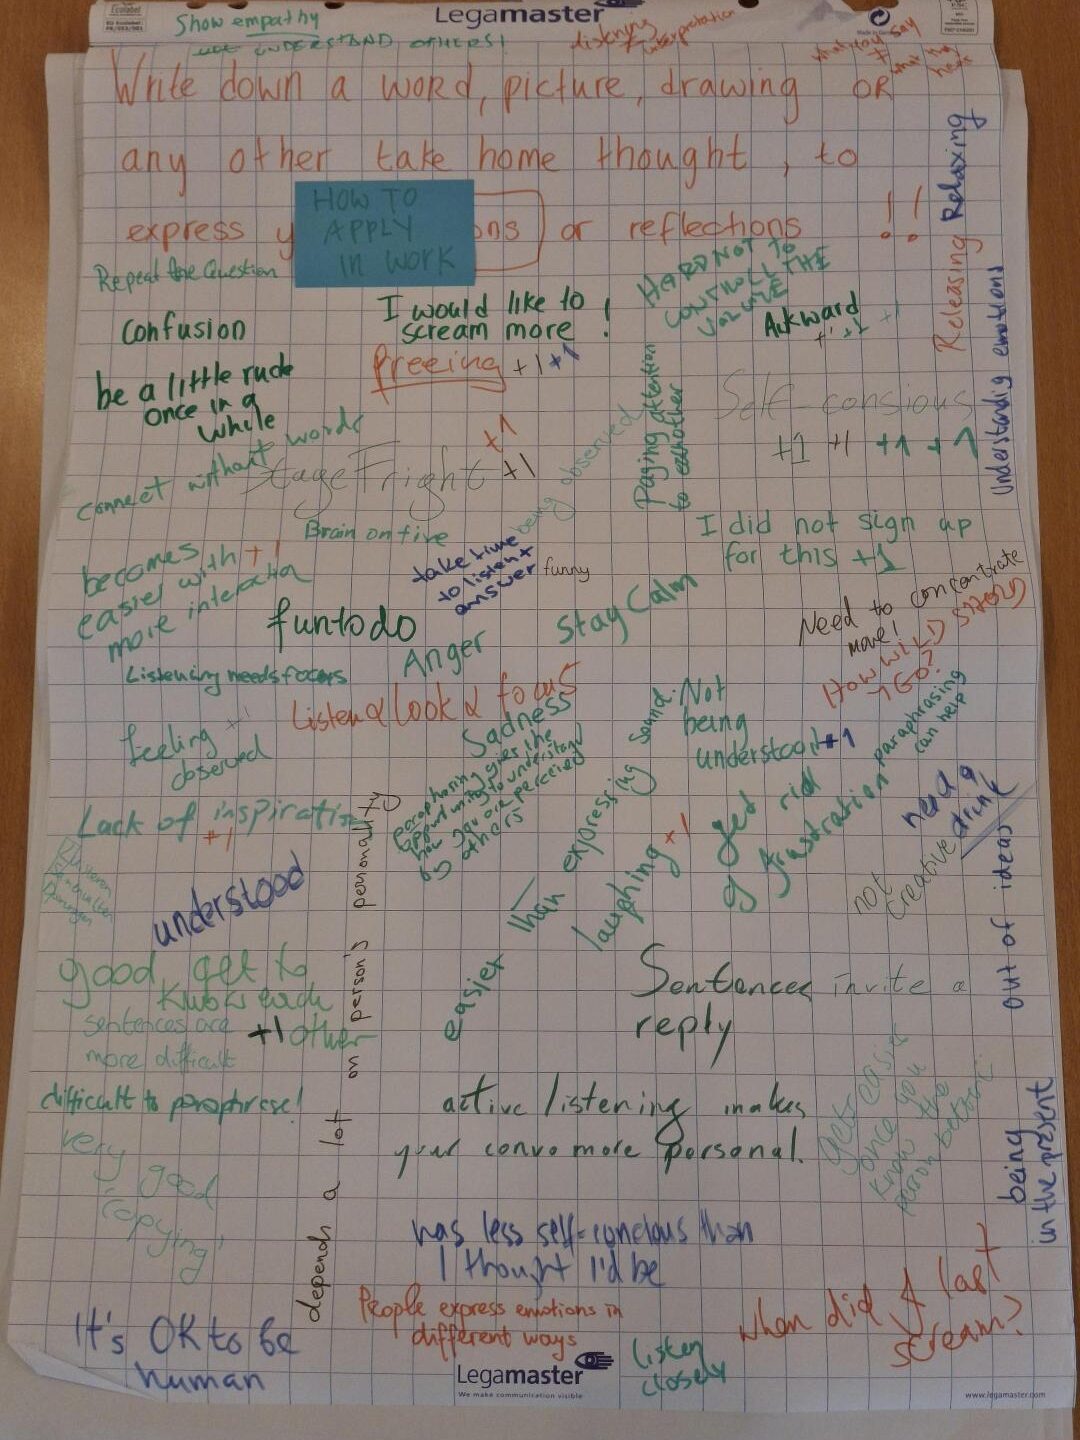 Show empathy
UNDERSTAND OTHERS!
Legamaster
listening
≠
interpretation
what you say
≠
what they
hear
Made in Germany
Write down a word, picture, drawing OR
any other take home thought, to
express y ons or reflections !!
HOW TO
APPLY
IN WORK
Releasing Relaxing
Repeat the Question
HARD NOT TO
CONTROLL THE
VOLUME
Confusion
I would like to
scream more!
Awkward
+1 +1 +1
freeing +1 +1
Understandig emotions
be a little rude
once in a
while
Paying attention
to eachother
Self-consious
+1 +1 +1 +1
connect without words
Stage Fright +1
+1
being observed
Brain on fire
I did not sign up
for this +1
becomes +1
easier with
more interaction
take time
to listen +
answer
funny
Need to concentrate
more!
fun to do
Stay Calm
Anger
HOW WILD
I GO?
Listening needs focus
Listen & look & focus
Sadness
Not
being
understood +1
feeling +1
observed
paraphrasing
can help
paraphasing gives the
oppurtunity to understand
how you are percieved
by others
Lack of inspiration
+1
get rid
of frustration
need a
drink
not
creative
laughing +1
easier than expressing sound
understood
out of ideas
good get to
know each
other
+1
sentences are
more difficult
Sentences invite a
reply
difficult to paraphrase!
active listening makes
your convo more personal.
gets easier
once you
know the
person better
very
good
"copying"
depends a lot on person's personality
being
in the present
was less self-concious than
I thought I'd be
It's OK to be
human
People express emotions in
different ways
when did I last
scream?
listen
closely
Legamaster
We make communication visible
www.legamaster.com